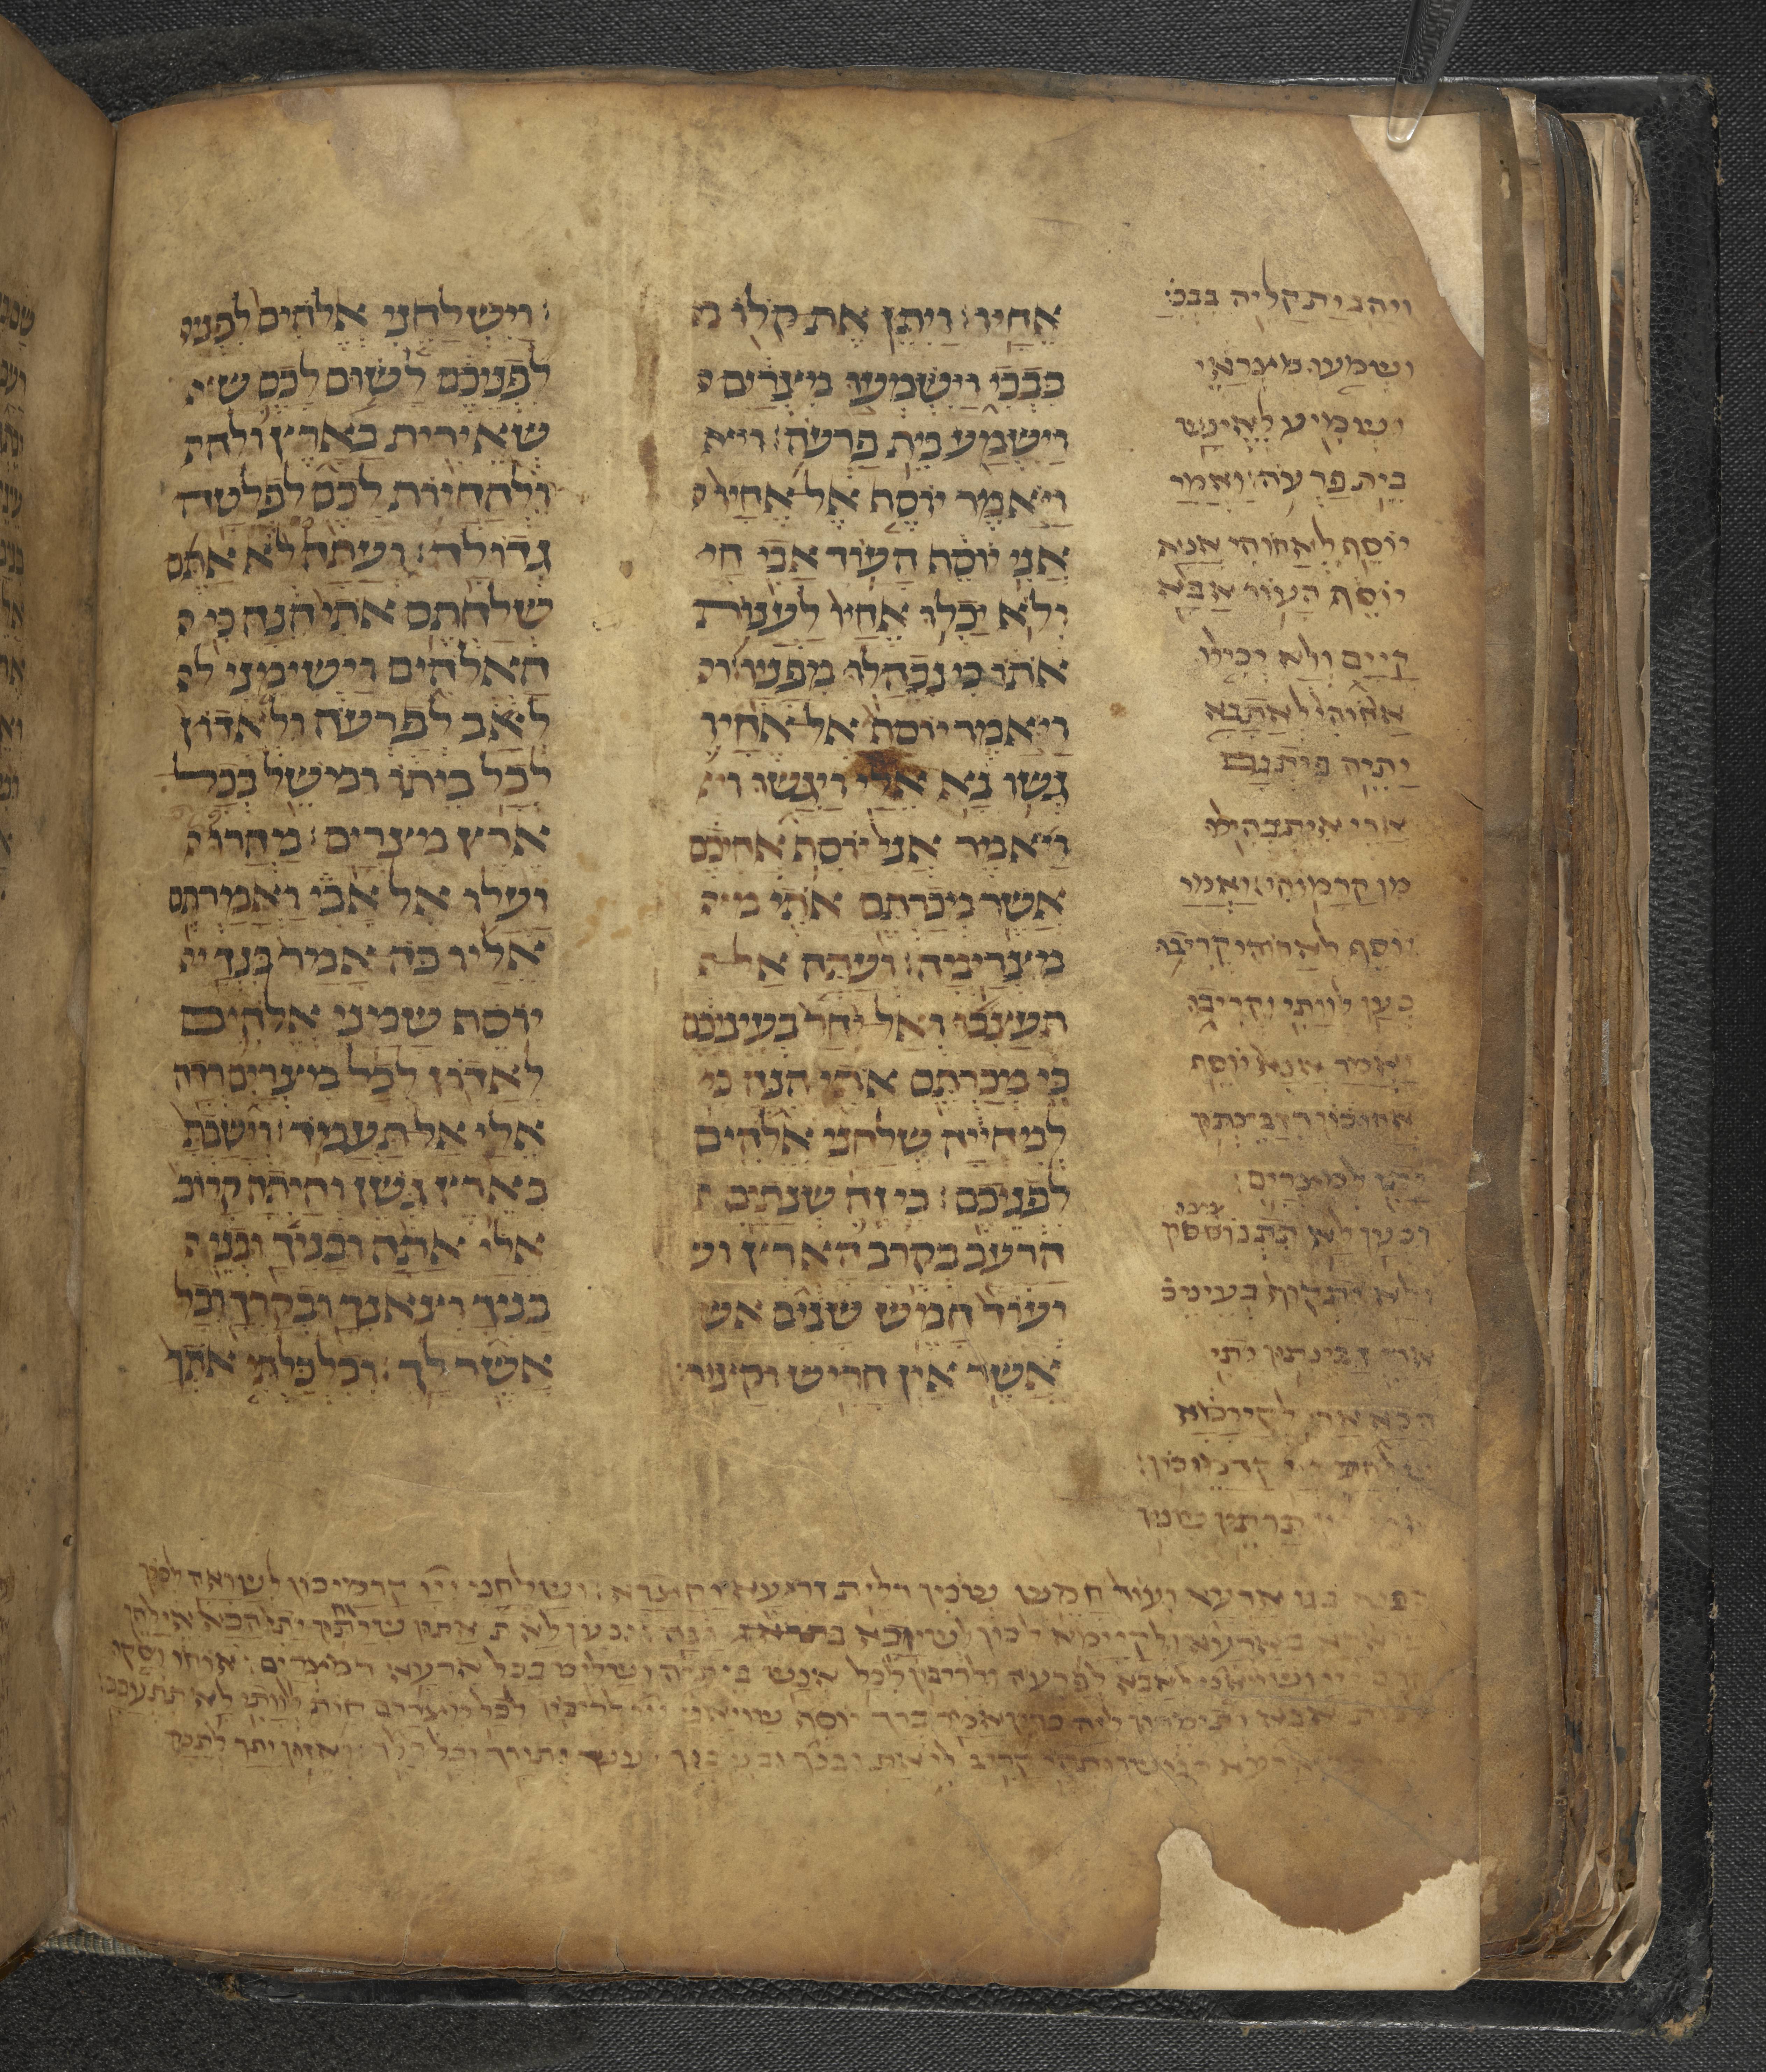 אחיו: ויתן את קלו
בבכי וישמעו מצרים
וישמע בית פרעה: ויא
ויאמר יוסף אל אחיו
אני יוסף העוד אבי חי
ולא יכלו אחיו לענות
אתו כי נבהלו מפניו
ויאמר יוסף אל אחיו
גשו נא אלי ויגשו
ויאמר אני יוסף אחיכם
אשר מכרתם אתי
מצרימה: ועתה אל
תעצבו ואל יחר בעיניכם
כי מכרתם אתי הנה כי
למחיה שלחני אלהים
לפניכם: כי זה שנתים
הרעב בקרב הארץ וע
ועוד חמש שנים אש
אשר אין חריש וקציר:
וישלחני אלהים לפני
לפניכם לשום לכם ש
שארית בארץ ולהח
ולהחיות לכם לפלטה
גדולה: ועתה לא אתם
שלחתם אתי הנה כי
האלהים וישימני
לאב לפרעה ולאדון
לכל ביתו ומשל בכל
ארץ מצרים: מהרו
ועלו אל אבי ואמרתם
אליו כה אמר בנך
יוסף שמני אלהים
לאדון לכל מצרים רדה
אלי אל תעמד: וישבת
בארץ גשן והיית קרוב
אלי אתה ובניך ובני
בניך וצאנך ובקרך וכל
אשר לך: וכלכלתי אתך
ויהב ית קליה בבכ
ושמעו מצראי
ושמיע לאינש
בית פרעה: ואמר
יוסף לאחוהי אנא
יוסף העוד אבא
קיים ולא יכילו
אחוהי לאתבא
יתיה פיתגם
ארי איתבהילו
מן קדמוהי: ואמר
יוסף לאחוהי קריבו
כען לותי וקריבו
ואמר אנא יוסף
אחוכון דזבינתון
יתי למצרים:
וכען לא תתנססון
ולא יתקוף בעיניכ
ארי זבינתון יתי
הכא ארי לקיומא
שלחני יי קדמיכון:
תרתין שנין
בגו ארעא ועוד חמש שנין דלית זרועא וחצדא: ושלחני יי קדמיכון לשואה לכון
בארעא ולקיימא לכון לשיזבא וכען לא אתון שלחתון יתי הכא אילהין
ושויאני לאבא לפרעה ולריבון לכל אנש ביתיה ושליט בכל ארעא דמצרים: אוחו וסקו
אבא ותימרון ליה כדנן אמר ברך יוסף שויאני יי לריבון לכל מצרים חות לותי לא תתעכב: